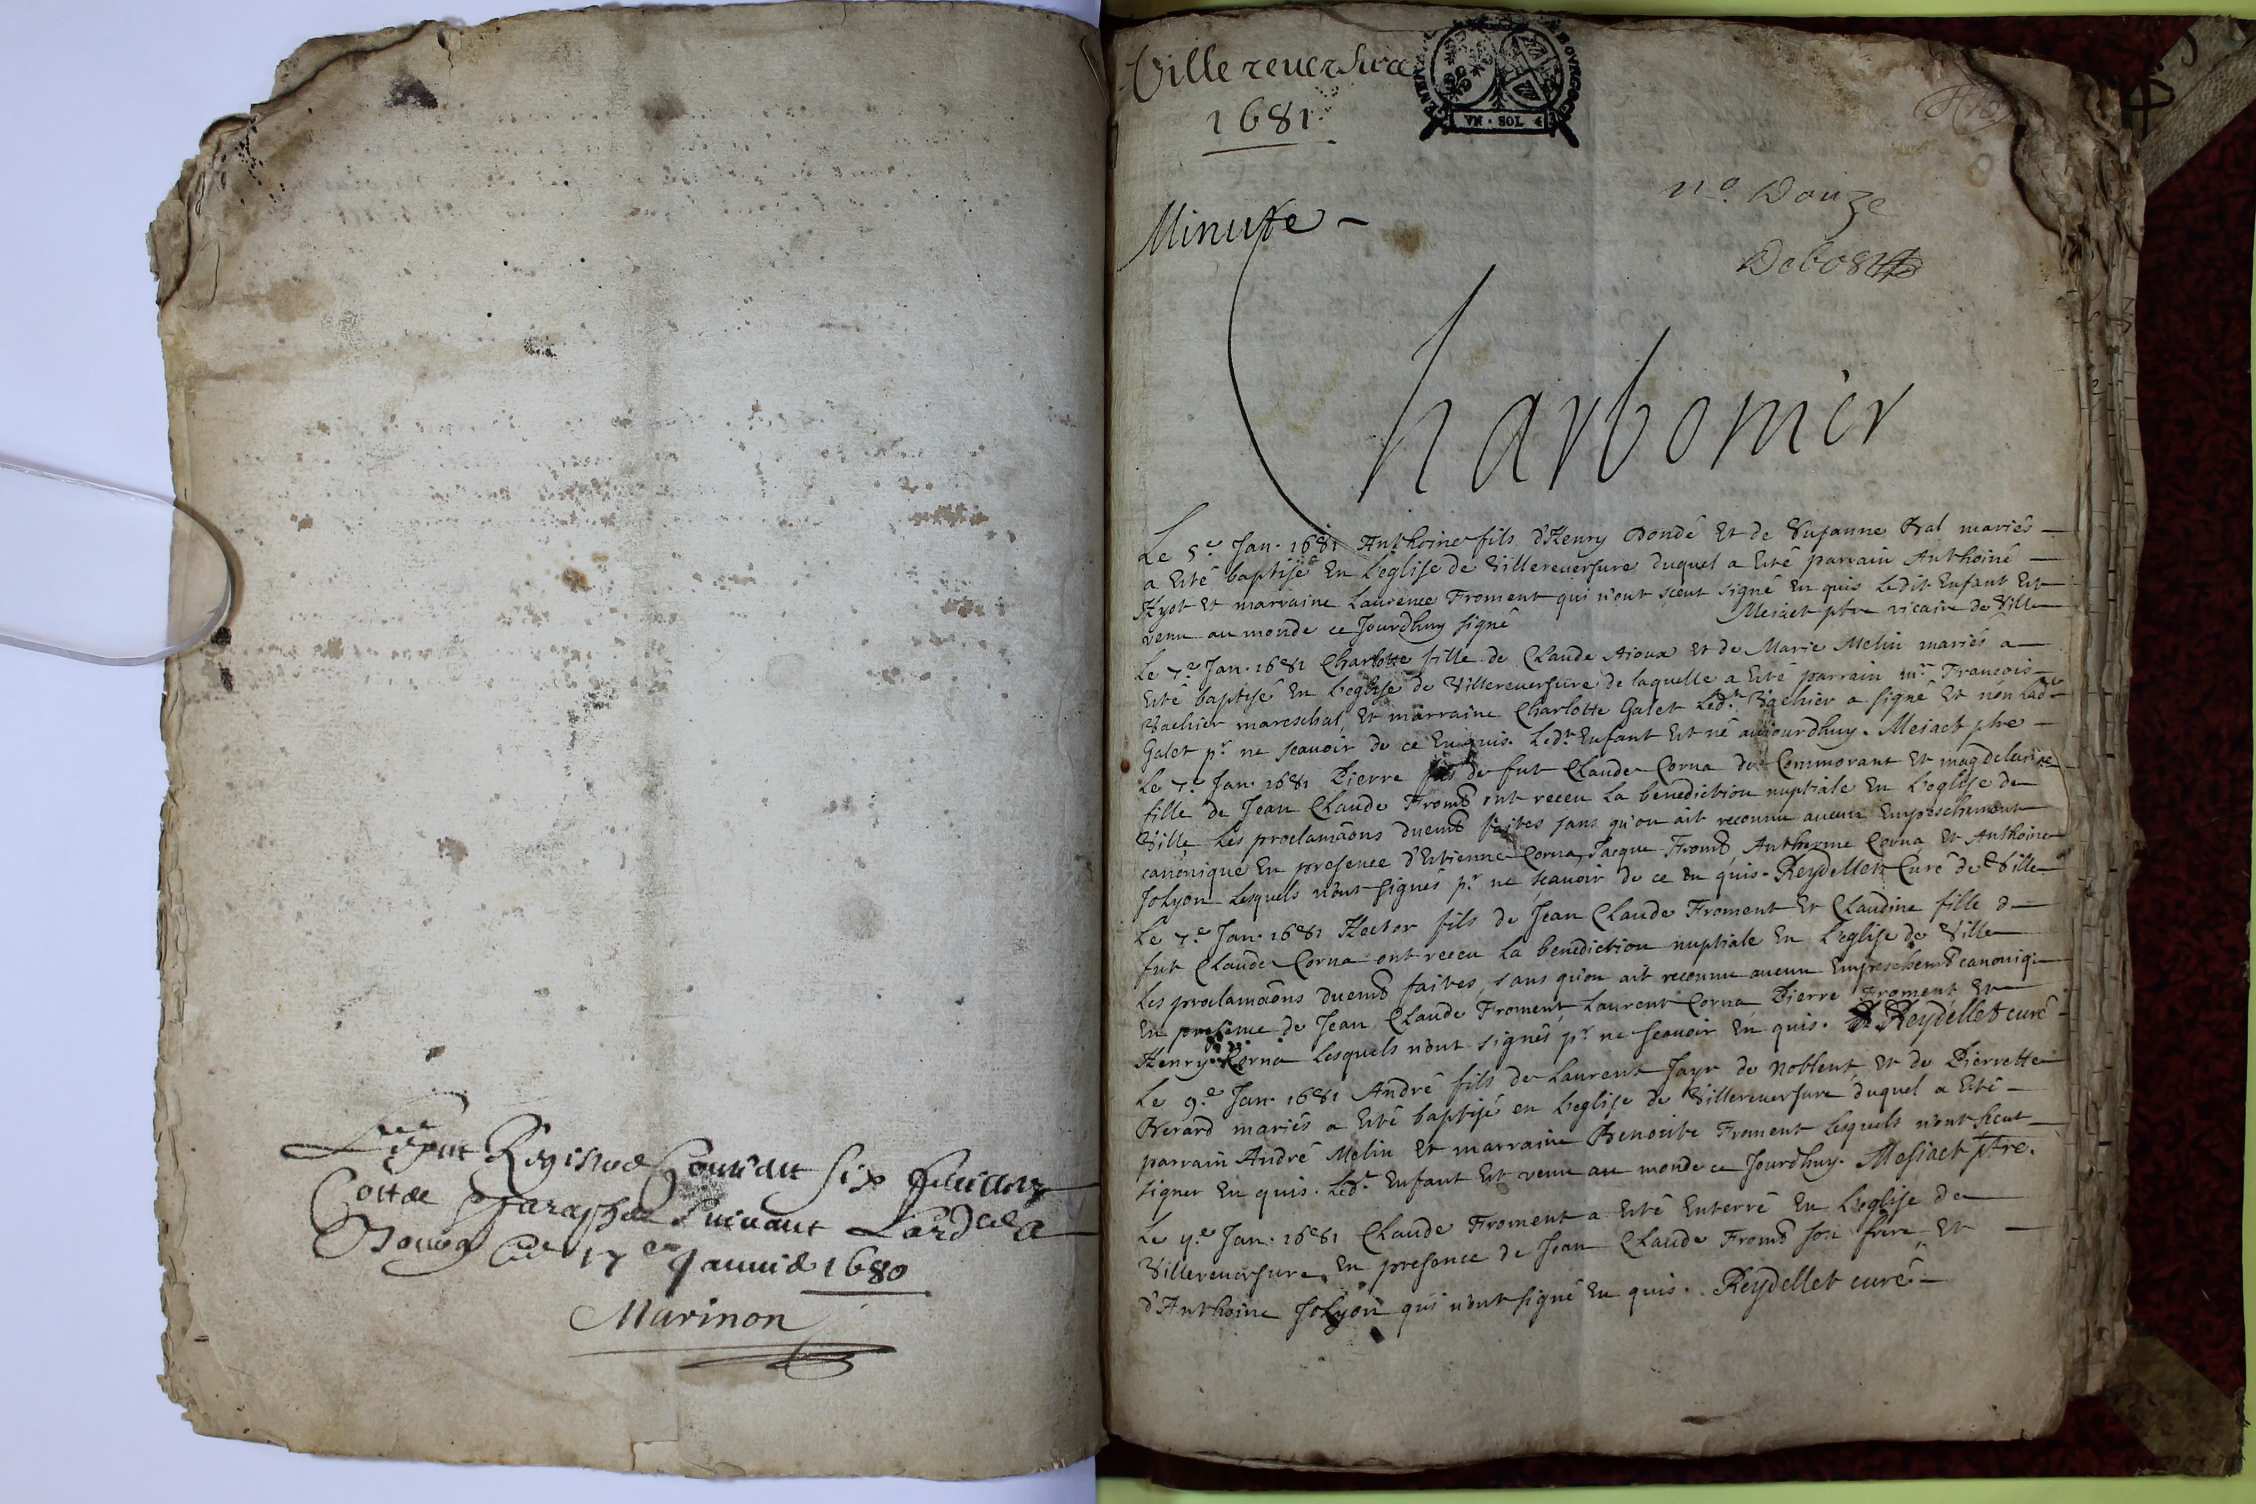 Le pnt Registre Contenant six feuillets
Cotté & paraphé suivant Lord.ce de
Bourg ce 17e Janvié 1680
Marinon
Villereversure
1681
VN · SOL 4
n.o Douze
Minute
Charbonier
Le 5.e Jan. 1681 Anthoine fils d'Henry Dondé Et de Susanne Bal mariés
a Esté baptisé En L'eglise de Villereversure duquel a Esté parrain Anthoine
Hyot Et marraine Laurence Froment qui n'ont sceut signé En quis Ledit Enfant Est
venu au monde ce Jourdhuy signé Mesiact ptre vicaire de Ville
Le 7.e Jan. 1681 Charlotte fille de Claude Aioux Et de Marie Melin mariés a
Esté baptisé En L'eglise de Villereversure de laquelle a Esté parrain m.re Francois
Vachier mareschal, Et marraine Charlotte Galet Led.t Vachier a signé Et non Lad.te
Galet p.r ne scauoir de ce Enquis. Led.t Enfant Est né aujourdhuy. Mesiact ptre
Le 7.e Jan. 1681 Pierre fils de fut Claude Corna de Commorant Et magdelaine
fille de Jean Claude From.t ont receu La benediction nuptiale En L'eglise de
Ville Les proclamaons duem.t faites sans qu'on ait reconnu aucun Empeschement
canonique En presence d'Estienne Corna, Jacque From.t, Antherme Corna Et Anthoine
Jolyon Lesquels n'ont signés p.r ne scauoir de ce En quis. Reydellet Curé de Ville
Le 7.e Jan. 1681 Hector fils de Jean Claude Froment Et Claudine fille d
fut Claude Corna ont receu La benediction nuptiale En L'eglise de Ville
Les proclamaons duem.t faites, sans qu'on ait reconnu aucun Empeschem.t canoniq.
En presence de Jean Claude Froment, Laurent Corna Pierre Froment, Et
Henry Corna Lesquels n'ont signés p.r ne scauoir En quis. Reydellet curé
Le 9.e Jan. 1681 André fils de Laurent Jayr de Noblent, Et de Pierrette
Berard mariés a Esté baptisé en L'eglise de Villereversure duquel a Esté
parrain André Melin Et marraine Benoite Froment Lesquels n'ont sceut
signer En quis. Led.t Enfant Est venu au monde ce Jourdhuy. Mesiact ptre.
Le 9.e Jan. 1681 Claude Froment a Esté Enterré En L'eglise de
Villereversure, En presence de Jean Claude From.t son frère Et
d'Anthoine Jolyon qui n'ont signé En quis. Reydellet curé